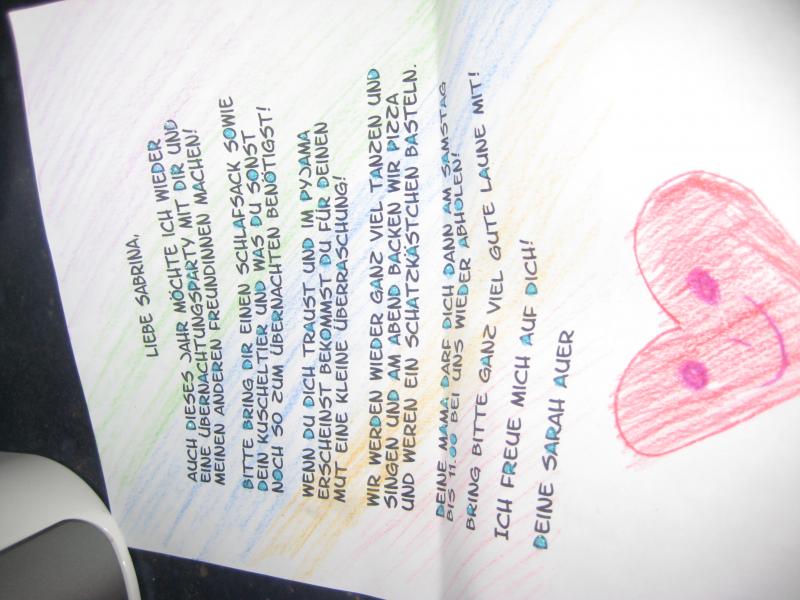 LIEBE SABRINA,
AUCH DIESES JAHR MÖCHTE ICH WIEDER
EINE ÜBERNACHTUNGSPARTY MIT DIR UND
MEINEN ANDEREN FREUNDINNEN MACHEN!
BITTE BRING DIR EINEN SCHLAFSACK SOWIE
DEIN KUSCHELTIER UND WAS DU SONST
NOCH SO ZUM ÜBERNACHTEN BENÖTIGST!
WENN DU DICH TRAUST UND IM PYJAMA
ERSCHEINST BEKOMMST DU FÜR DEINEN
MUT EINE KLEINE ÜBERRASCHUNG!
WIR WERDEN WIEDER GANZ VIEL TANZEN UND
SINGEN UND AM ABEND BACKEN WIR PIZZA
UND WEREN EIN SCHATZKÄSTCHEN BASTELN.
DEINE MAMA DARF DICH DANN AM SAMSTAG
BIS 11.00 BEI UNS WIEDER ABHOLEN!
BRING BITTE GANZ VIEL GUTE LAUNE MIT!
ICH FREUE MICH AUF DICH!
DEINE SARAH AUER